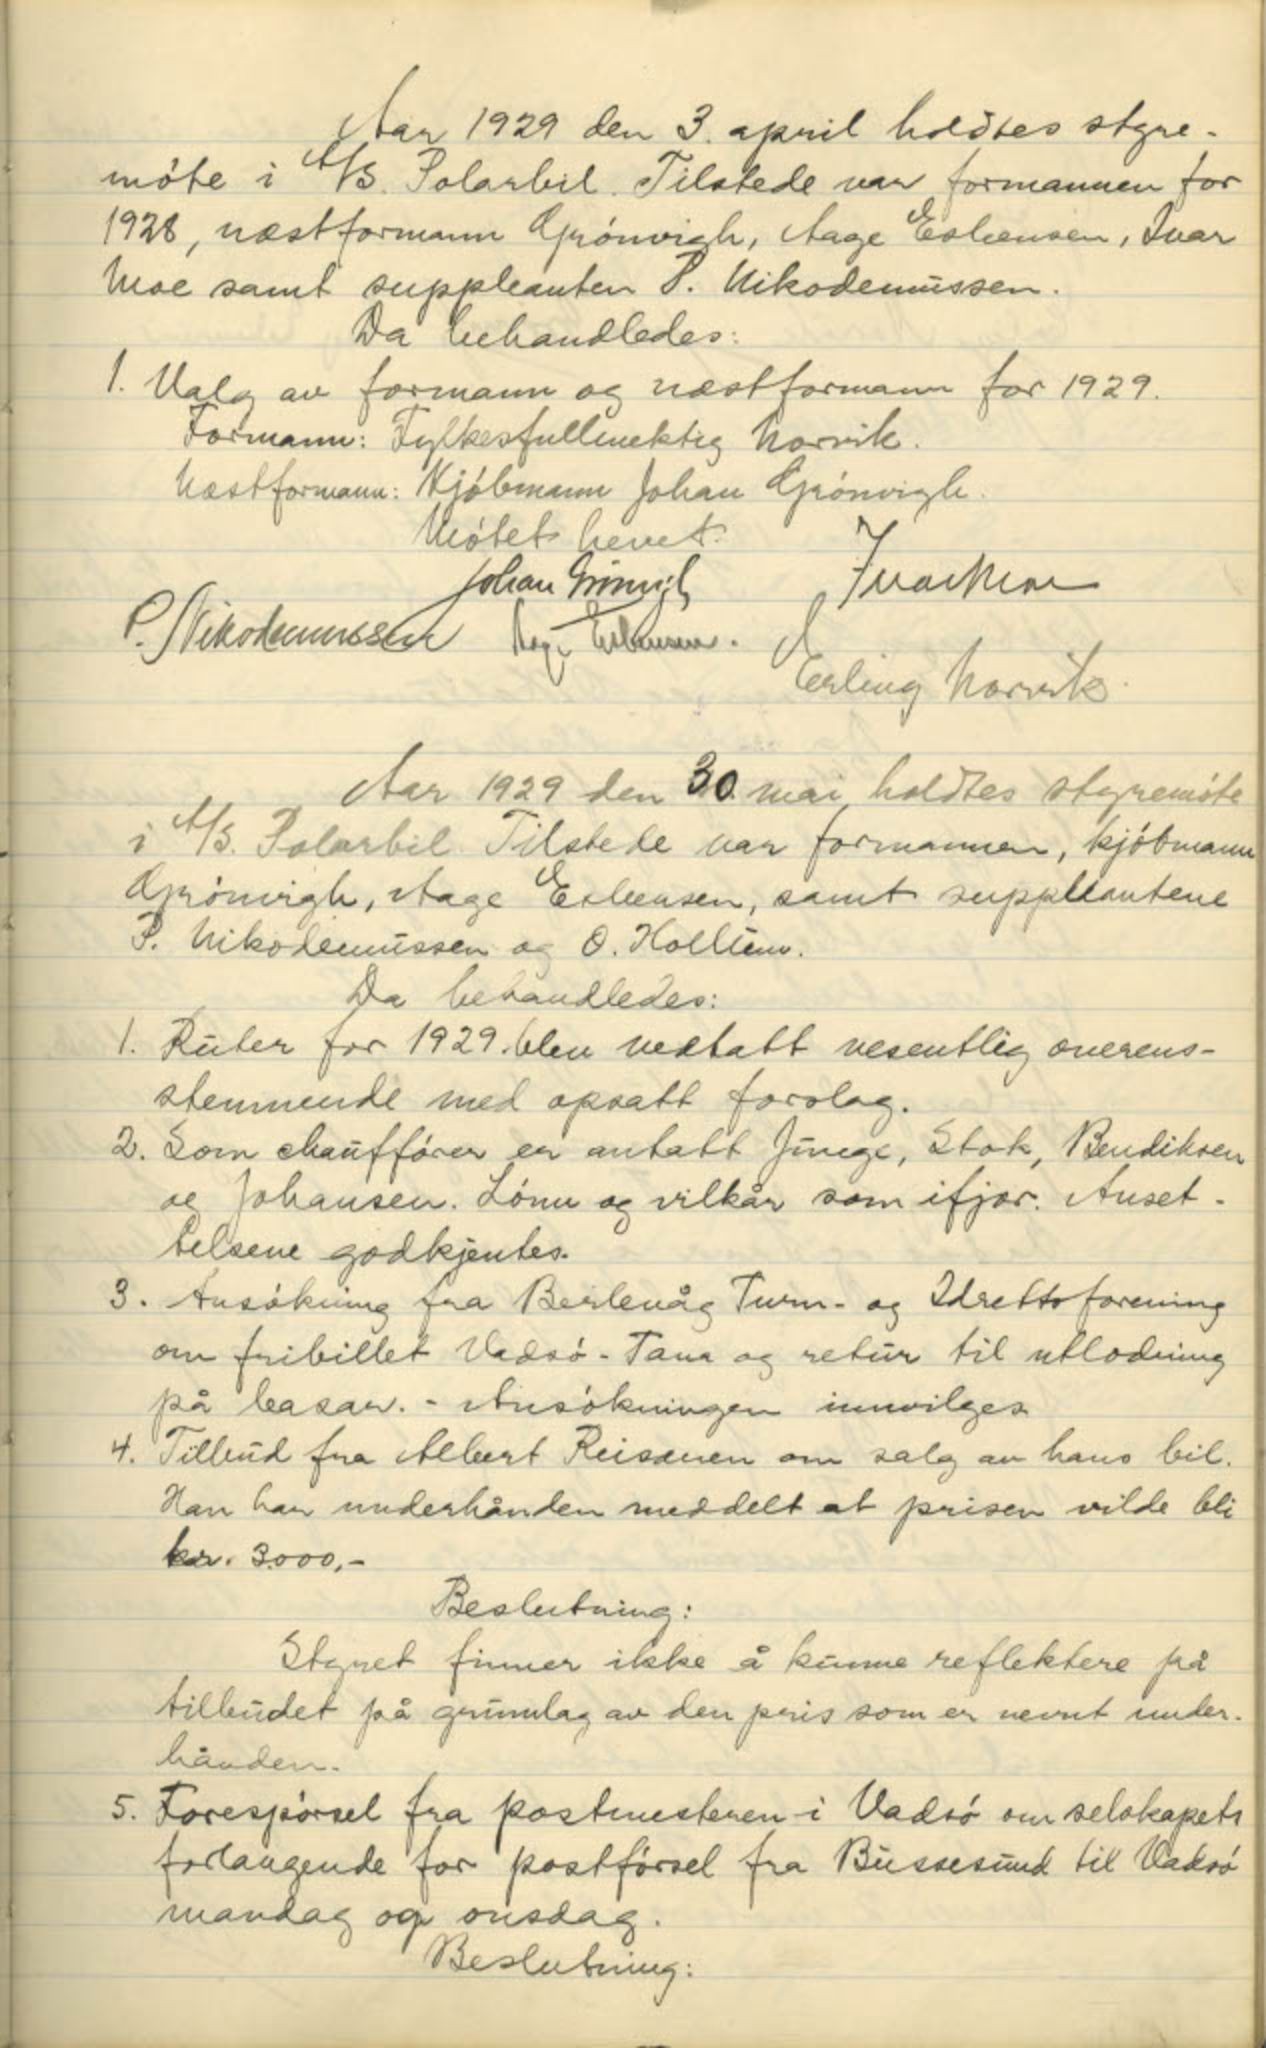 Aar 1929 den 3. april holdtes styre-
möte i A/S. Polarbil. Tilstede var formannen for
1928, næstformann Grönvigh, Aage Esbensen, Ivar
Moe samt suppleanten P. Nikodemussen.
Da behandledes:
1. Valg av formann og næstformann for 1929.
Formann: Fylkesfullmektig Norvik.
Næstformann: Kjöbmann Johan Grönvigh.
Mötet hevet.
Johan Grönvigh Ivar Moe
P. Nikodemussen Aage Esbensen.
Erling Norvik.
Aar 1929 den 30. mai holdtes styremöte
i A/S. Polarbil Tilstede var formannen, kjöbmann
Grönvigh, Aage Esbensen, samt suppleantene
P. Nikodemussen og O. Hollum.
Da behandledes:
1. Ruter for 1929. blev vedtatt vesentlig overens-
stemmende med opsatt forslag.
2. Som chauffören er antatt Junge, Stok, Bendiksen
og Johansen. Lönn og vilkår som ifjor. Anset-
telsene godkjentes.
3. Ansökning fra Berlevåg Turn- og Idrettsforening
om fribillet Vadsö - Tana og retur til utlodning
på basar. - Ansökningen innvilges
4. Tilbud fra Albert Reisænen om salg av hans bil.
Han har underhånden meddelt at prisen vilde bli
kr. 3.000,-
Beslutning:
Styret finner ikke å kunne reflektere på
tilbudet på grunnlag av den pris som er nevnt under-
hånden.
5. Forespörsel fra postmesteren i Vadsö om selskapets
forlangende for postförsel fra Bussesund til Vadsö
mandag og onsdag.
Beslutning: